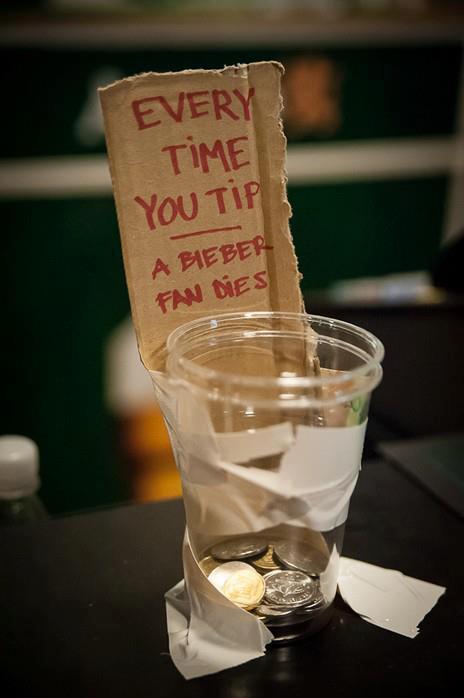 EVERY
TiME
YOU TiP
A BIEBER
FAN DiES